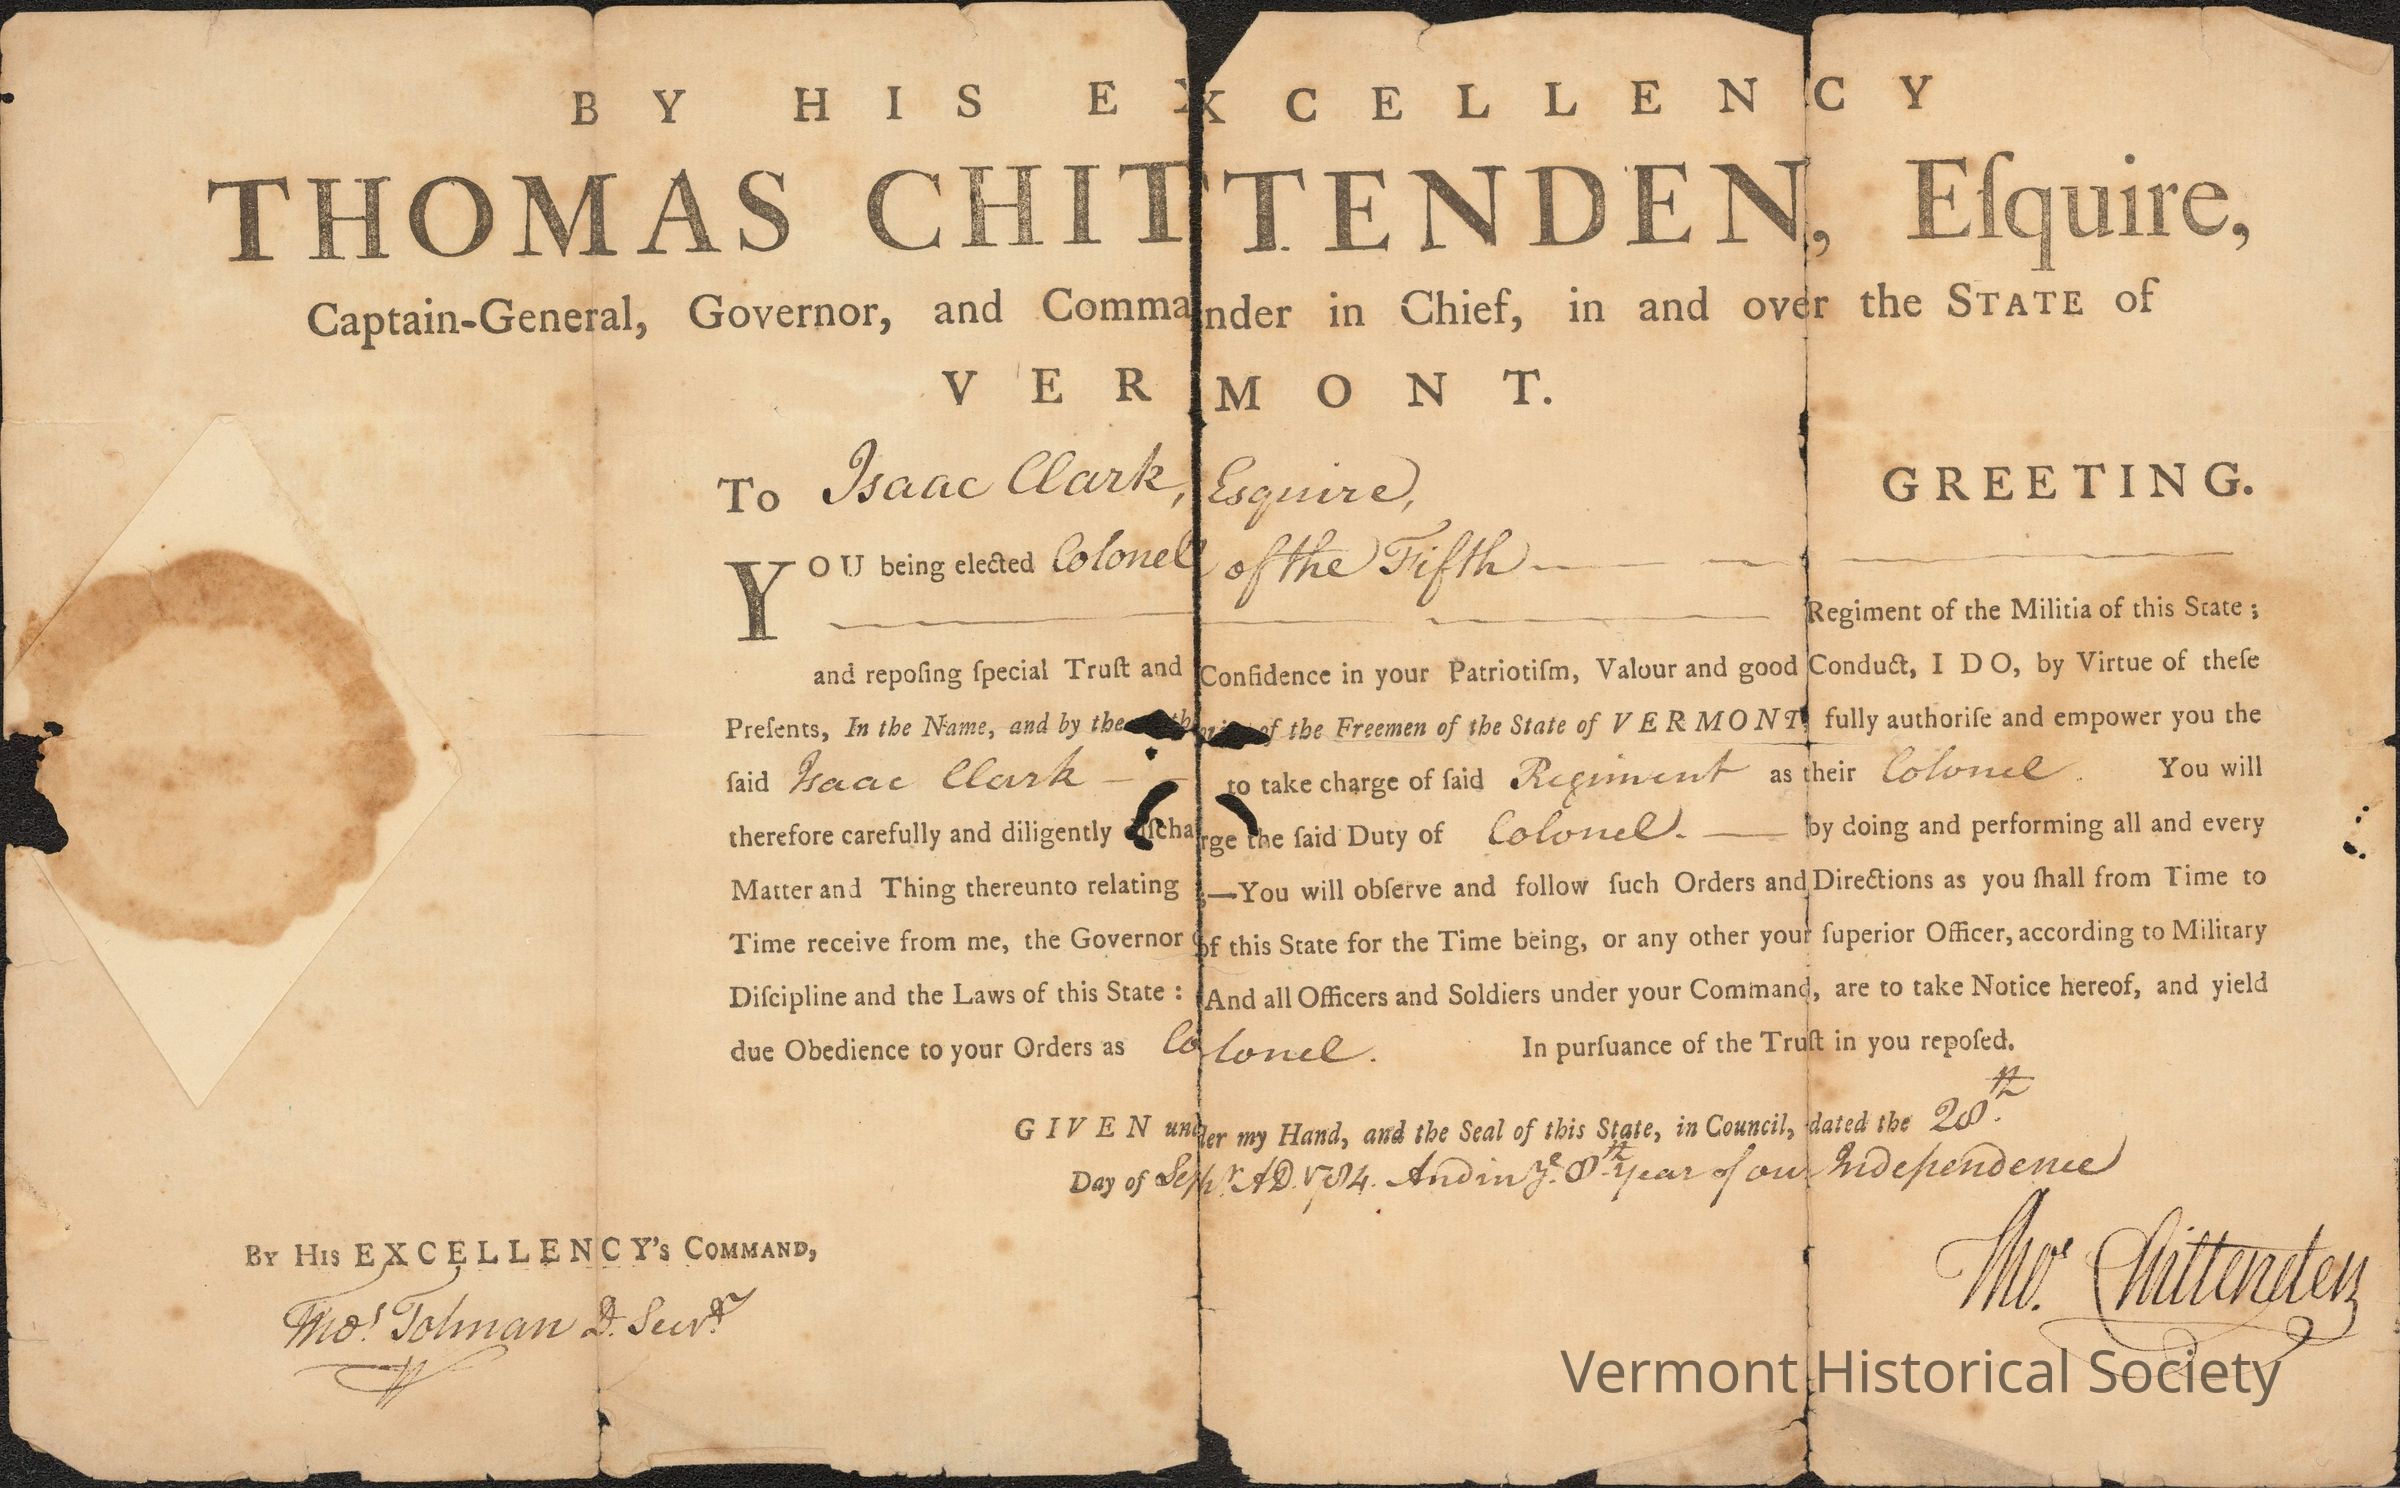 BY HIS EXCELLENCY
THOMAS CHITTENDEN, Eſquire,
Captain-General, Governor, and Commander in Chief, in and over the STATE of
VERMONT.
To Isaac Clark, Esquire, GREETING.
YOU being elected Colonel of the Fifth
Regiment of the Militia of this State;
and repoſing ſpecial Truſt and Confidence in your Patriotiſm, Valour and good Conduct, I DO, by Virtue of theſe
Preſents, In the Name, and by the of the Freemen of the State of VERMONT, fully authoriſe and empower you the
ſaid Isaac Clark — to take charge of ſaid Regiment as their Colonel. You will
therefore carefully and diligently diſcharge the ſaid Duty of Colonel. — by doing and performing all and every
Matter and Thing thereunto relating ;—You will obſerve and follow ſuch Orders and Directions as you ſhall from Time to
Time receive from me, the Governor of this State for the Time being, or any other your ſuperior Officer, according to Military
Diſcipline and the Laws of this State: And all Officers and Soldiers under your Command, are to take Notice hereof, and yield
due Obedience to your Orders as Colonel. In purſuance of the Truſt in you repoſed.
GIVEN under my Hand, and the Seal of this State, in Council, dated the 28th.
Day of Sept.r AD. 1784. And in ye. 8th year of our Independence
Thos. Chittenden
BY HIS EXCELLENCY's COMMAND,
Thos. Tolman D. Secry.
Vermont Historical Society